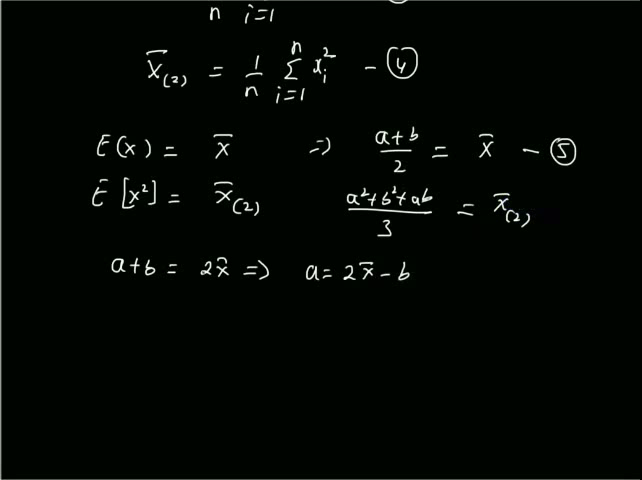 n i=1
x̄₍₂₎ = 1/n Σ_{i=1}^{n} xᵢ² - ④
E(x) = x̄ ⇒ (a+b)/2 = x̄ - ⑤
E[x²] = x̄₍₂₎ (a²+b²+ab)/3 = x̄₍₂₎
a+b = 2x̄ ⇒ a = 2x̄ - b